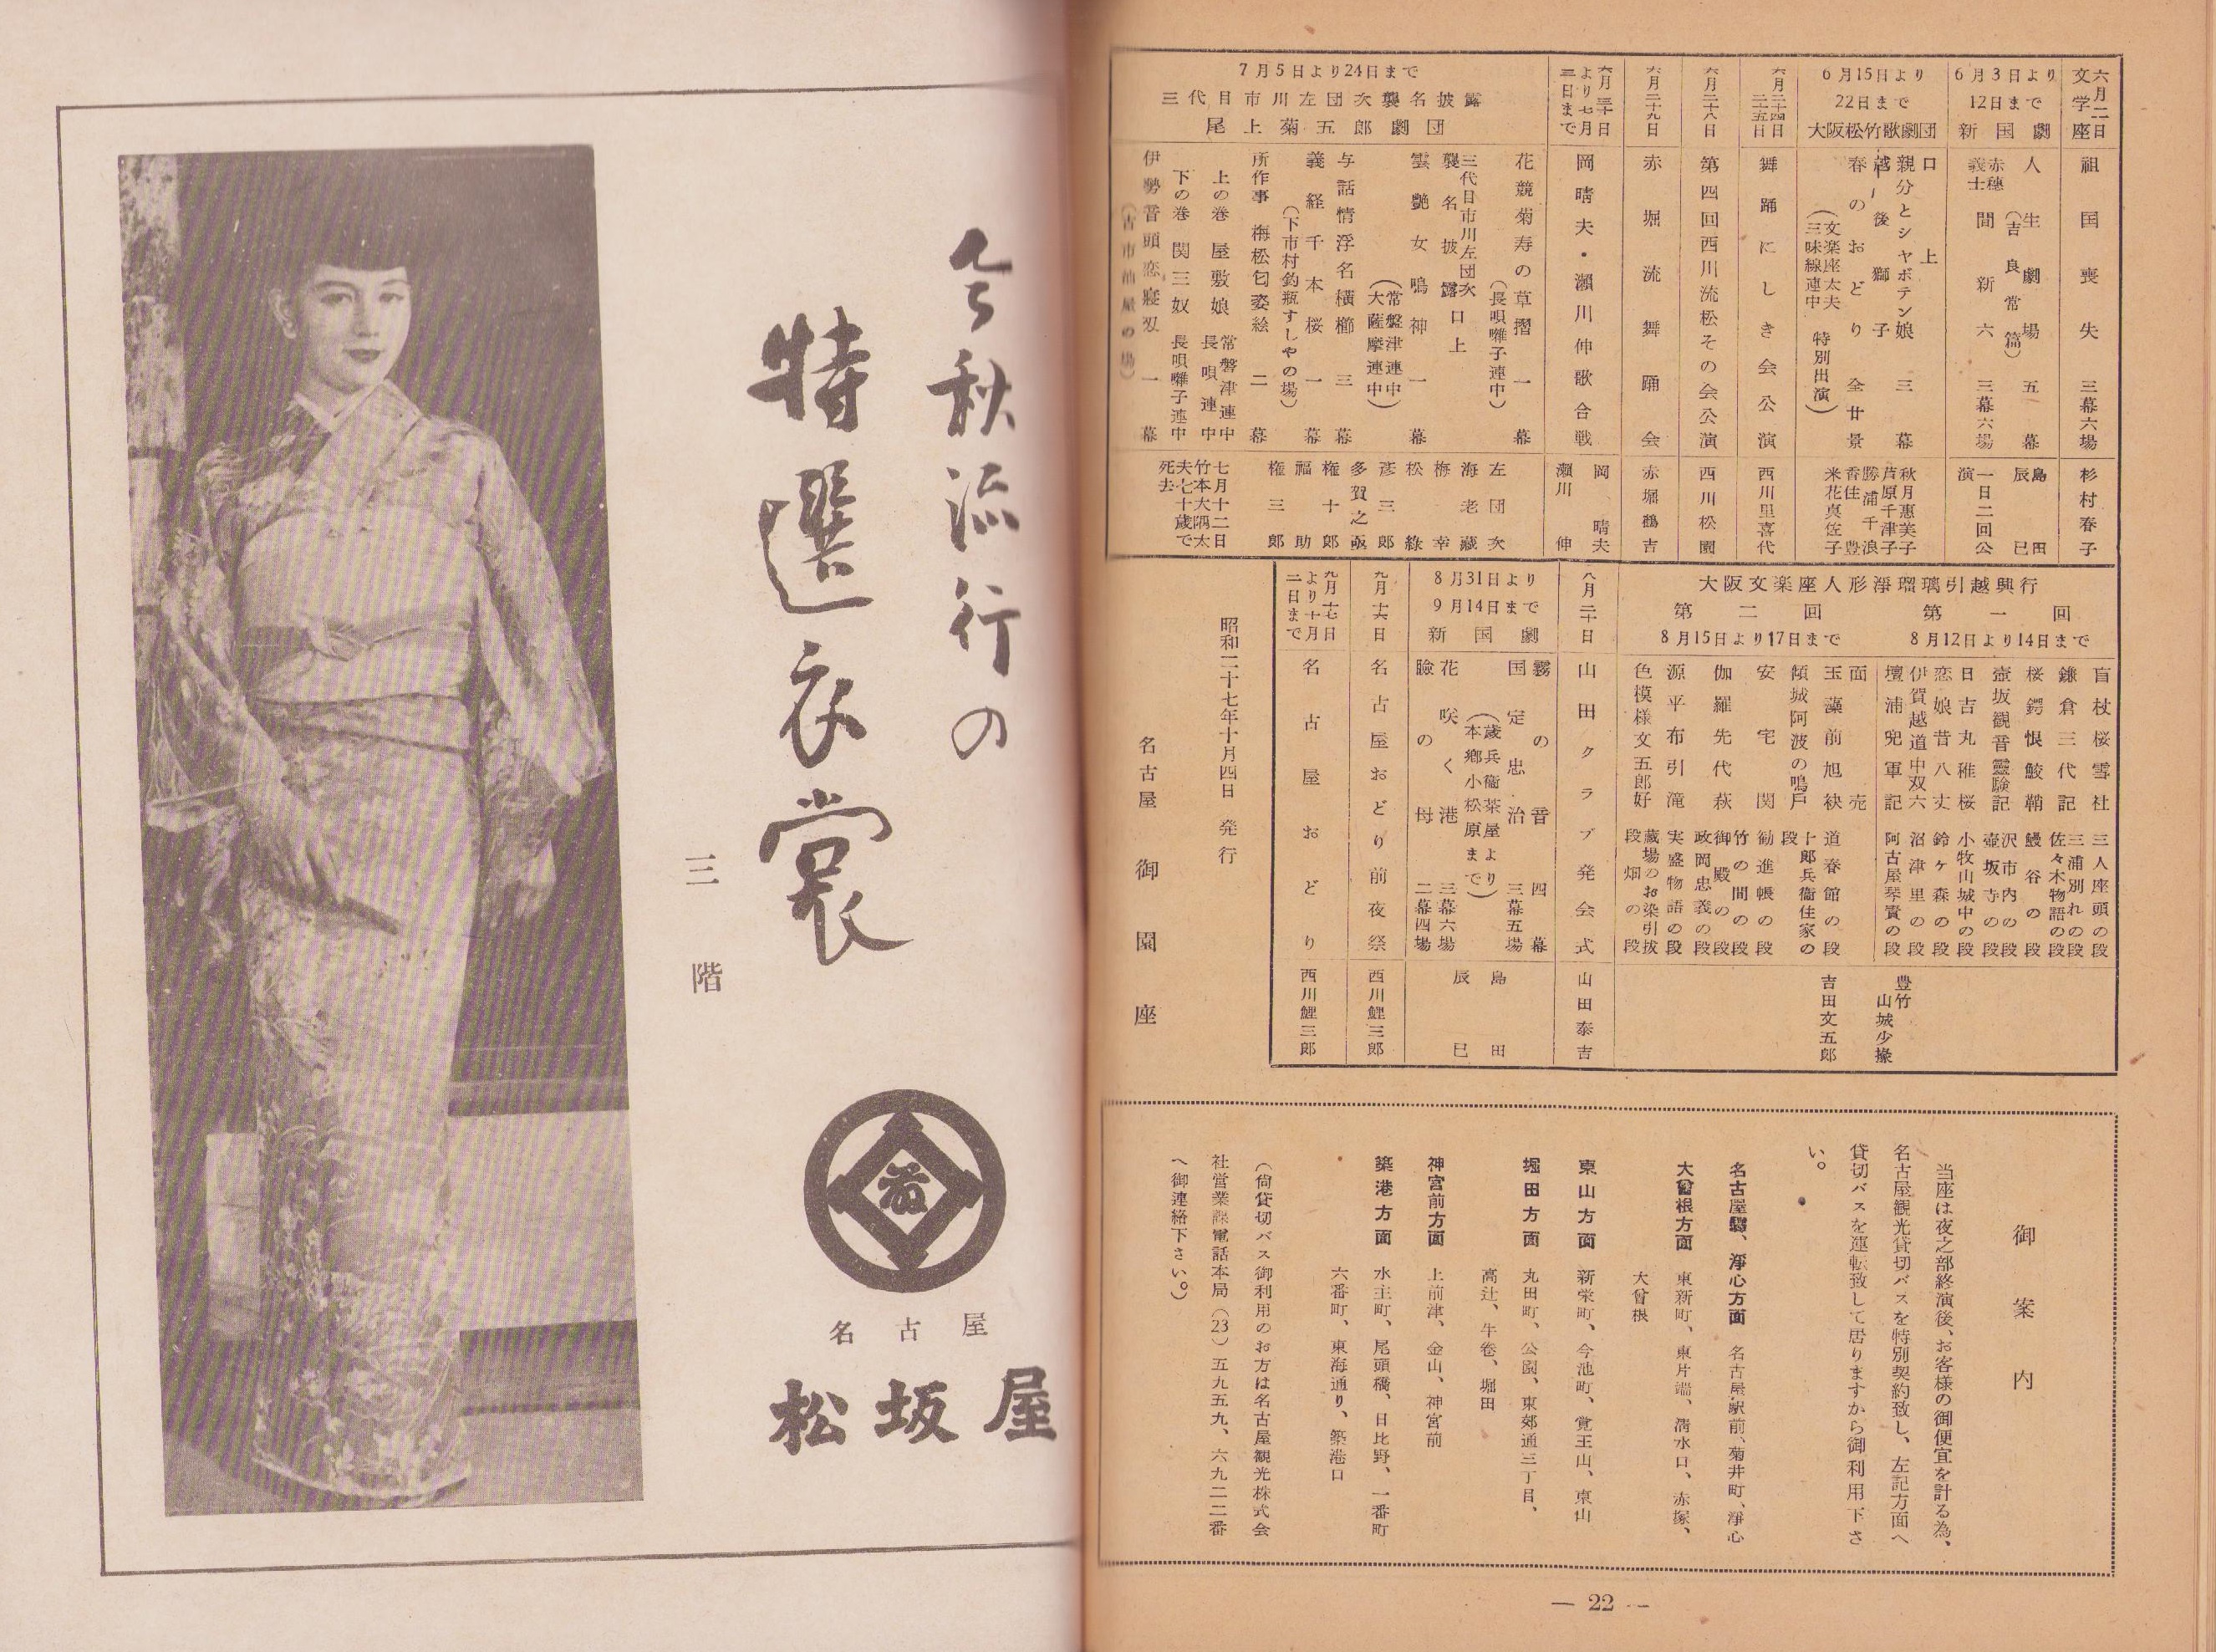 六月二日
文学座
祖国喪失 三幕六場
杉村春子
6月3日より
12日まで
新国劇
人生劇場 五幕
(吉良常篇)
赤穂義士 間新六 三幕六場
島田
辰巳
一日二回公演
6月15日より
22日まで
大阪松竹歌劇団
口上
親分とシヤボテン娘 三幕
越後獅子
春のおどり 全廿景
(文楽座太夫
三味線連中 特別出演)
秋月惠美子
芦原千津子
勝浦千浪
香住豊
米花真佐子
六月二十四日
二十五日
舞踊にしき会公演
西川里喜代
六月二十八日
第四回西川流松その会公演
西川松園
六月二十九日
赤堀流舞踊会
赤堀鶴吉
六月三十日
より七月
三日まで
岡晴夫・瀬川伸歌合戦
岡晴夫
瀬川伸
7月5日より24日まで
三代目市川左団次襲名披露
尾上菊五郎劇団
花競菊寿の草摺 一幕
(長唄囃子連中)
三代目市川左団次
襲名披露口上
雲艶女鳴神 一幕
(常盤津連中
大薩摩連中)
与話情浮名横櫛 三幕
義経千本桜 一幕
(下市村釣瓶すしやの場)
所作事 梅松匂姿絵 二幕
上の巻 屋敷娘 常磐津連中
長唄連中
下の巻 関三奴 長唄囃子連中
伊勢音頭恋寝刄 一幕
(古市油屋の場)
左団次
海老蔵
梅幸
松緑
彦三郎
多賀之丞
権十郎
福助
権三郎
七月十二日
竹本大隅太
夫七十歳で
死去
大阪文楽座人形淨瑠璃引越興行
第一回
8月12日より14日まで
盲杖桜雪社 三人座頭の段
鎌倉三代記 三浦別れの段
佐々木物語の段
桜鍔恨鮫鞘 鰻谷の段
壺坂観音霊験記 沢市内の段
壺坂寺の段
日吉丸稚桜 小牧山城中の段
恋娘昔八丈 鈴ヶ森の段
伊賀越道中双六 沼津里の段
壇浦兜軍記 阿古屋琴責の段
第二回
8月15日より17日まで
面売
玉藻前旭袂 道春館の段
傾城阿波の鳴戸 十郎兵衛住家の
段
安宅関 勧進帳の段
伽羅先代萩 竹の間の段
御殿の段
政岡忠義の段
源平布引滝 実盛物語の段
色模様文五郎好 蔵場のお染引抜
段畑の段
豊竹
山城少掾
吉田文五郎
八月二十日
山田クラブ発会式
山田泰吉
8月31日より
9月14日まで
新国劇
霧の音 四幕
国定忠治 三幕五場
(歳兵衞茶屋より
本郷小松原まで)
花咲く港 三幕六場
瞼の母 二幕四場
島田
辰巳
九月十六日
名古屋おどり前夜祭
西川鯉三郎
九月十七日
より十月
二日まで
名古屋おどり
西川鯉三郎
昭和二十七年十月四日 発行
名古屋 御園座
御案内
当座は夜之部終演後、お客様の御便宜を計る為、
名古屋観光貸切バスを特別契約致し、左記方面へ
貸切バスを運転致して居りますから御利用下さ
い。
名古屋驛、淨心方面 名古屋駅前、菊井町、淨心
大曾根方面 東新町、東片端、清水口、赤塚、
大曾根
東山方面 新栄町、今池町、覚王山、東山
堀田方面 丸田町、公園、東郊通三丁目、
高辻、牛巻、堀田
神宮前方面 上前津、金山、神宮前
築港方面 水主町、尾頭橋、日比野、一番町
六番町、東海通り、築港口
(尚貸切バス御利用のお方は名古屋観光株式会
社営業課電話本局(23)五九五九、六九二二番
へ御連絡下さい。)
— 22 —
今秋流行の
特選衣裳
三階
名古屋
松坂屋